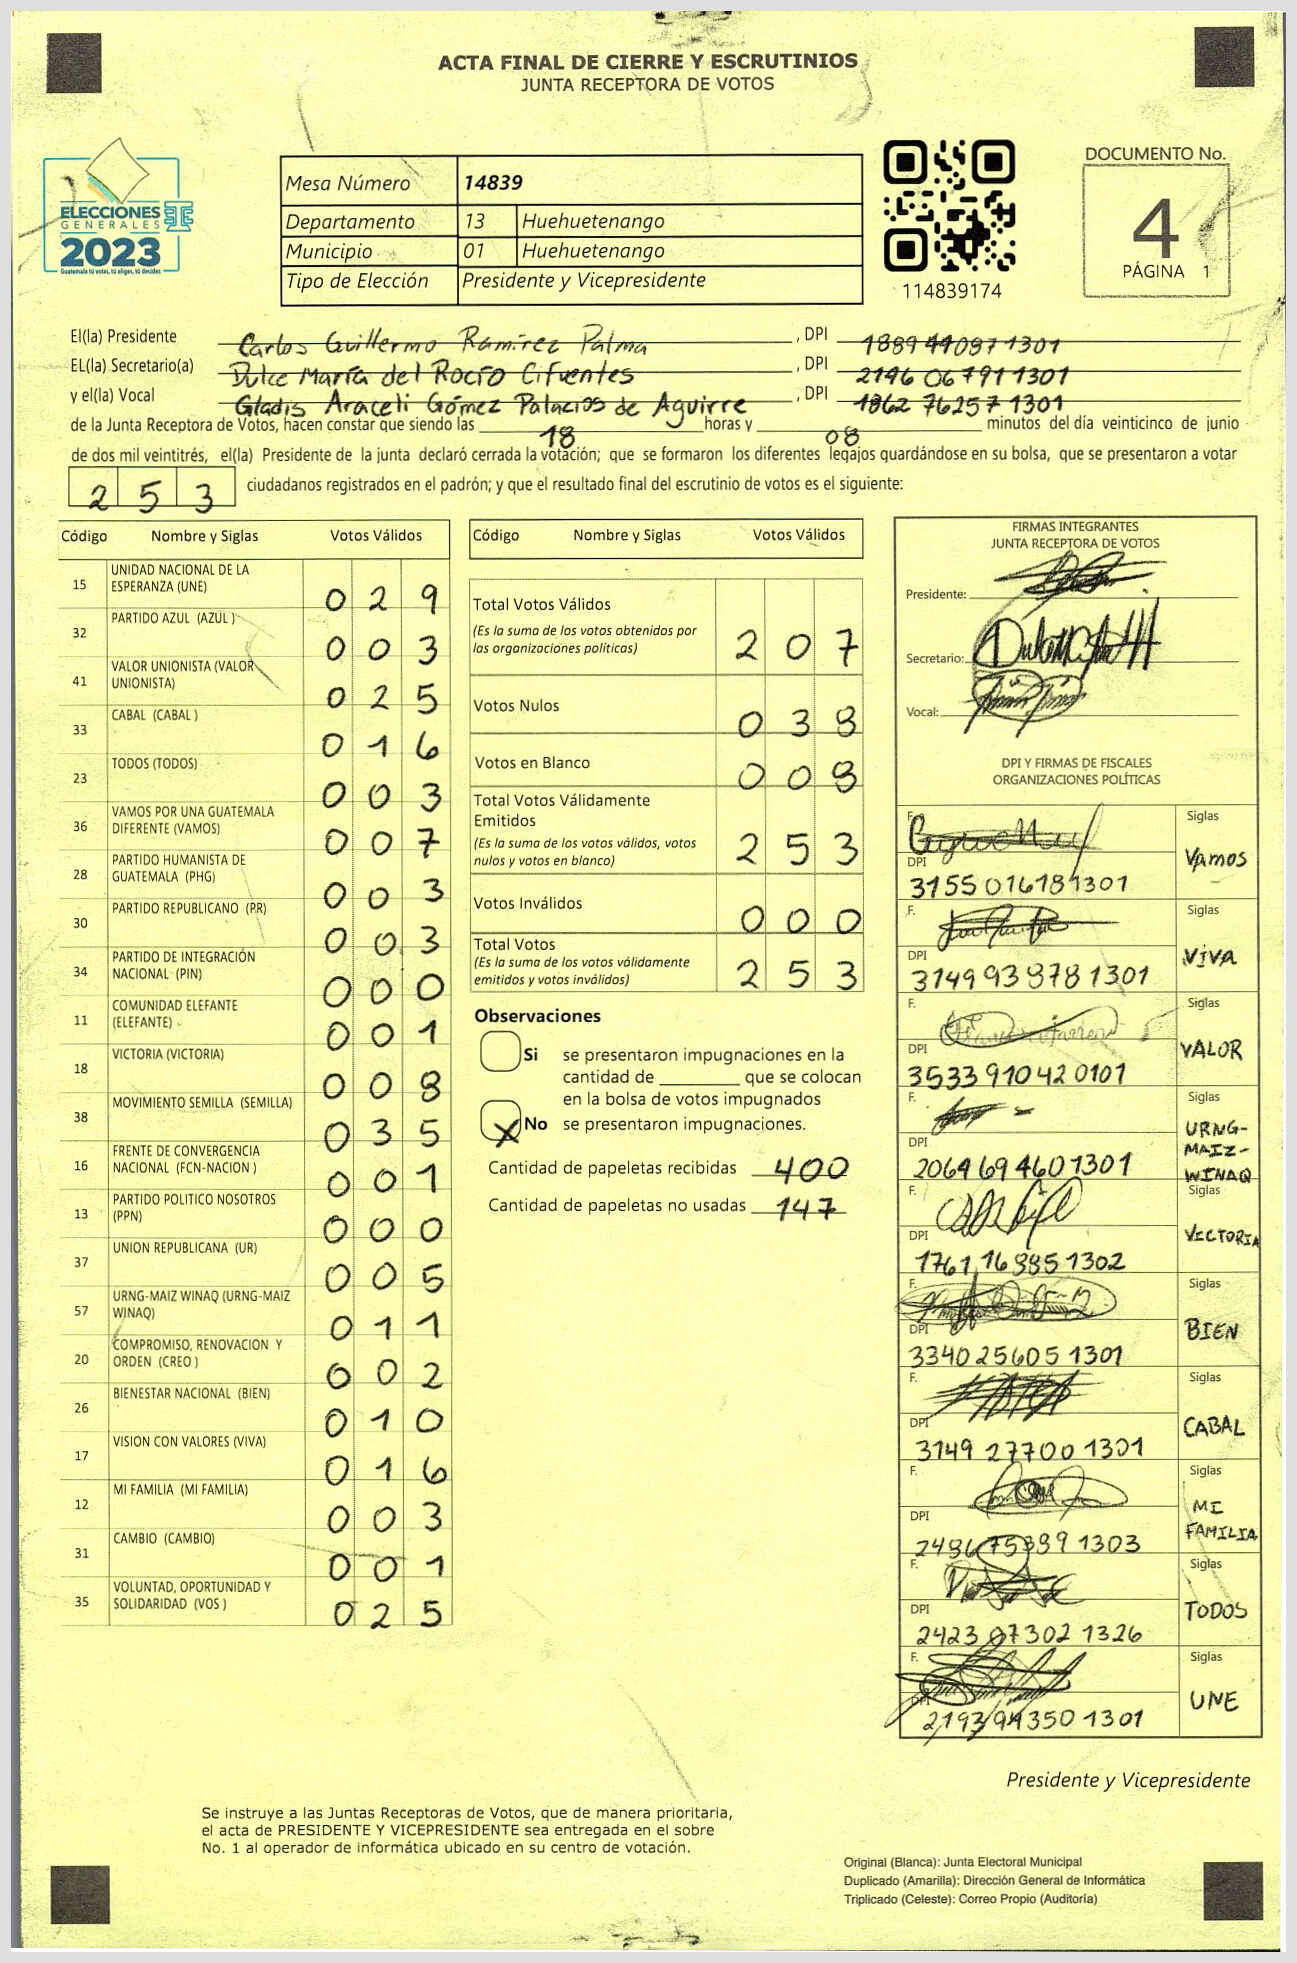 ACTA FINAL DE CIERRE Y ESCRUTINIOS
JUNTA RECEPTORA DE VOTOS
ELECCIONES
GENERALES
2023
Guatemala tú votas, tú eliges, tú decides
Mesa Número 14839
Departamento 13 Huehuetenango
Municipio 01 Huehuetenango
Tipo de Elección Presidente y Vicepresidente
114839174
DOCUMENTO No.
4
PÁGINA 1
El(la) Presidente Carlos Guillermo Ramírez Palma, DPI 1889 41097 1301
EL(la) Secretario(a) Dulce María del Rocío Cifuentes, DPI 2196 06791 1301
y el(la) Vocal Gladis Araceli Gómez Palacios de Aguirre, DPI 1862 76257 1301
de la Junta Receptora de Votos, hacen constar que siendo las 18 horas y 08 minutos del día veinticinco de junio
de dos mil veintitrés, el(la) Presidente de la junta declaró cerrada la votación; que se formaron los diferentes legajos guardándose en su bolsa, que se presentaron a votar
253 ciudadanos registrados en el padrón; y que el resultado final del escrutinio de votos es el siguiente:
Código Nombre y Siglas Votos Válidos
15 UNIDAD NACIONAL DE LA ESPERANZA (UNE) 029
32 PARTIDO AZUL (AZUL ) 003
41 VALOR UNIONISTA (VALOR UNIONISTA) 025
33 CABAL (CABAL ) 016
23 TODOS (TODOS) 003
36 VAMOS POR UNA GUATEMALA DIFERENTE (VAMOS) 007
28 PARTIDO HUMANISTA DE GUATEMALA (PHG) 003
30 PARTIDO REPUBLICANO (PR) 003
34 PARTIDO DE INTEGRACIÓN NACIONAL (PIN) 000
11 COMUNIDAD ELEFANTE (ELEFANTE) 001
18 VICTORIA (VICTORIA) 008
38 MOVIMIENTO SEMILLA (SEMILLA) 035
16 FRENTE DE CONVERGENCIA NACIONAL (FCN-NACION ) 001
13 PARTIDO POLITICO NOSOTROS (PPN) 000
37 UNION REPUBLICANA (UR) 005
57 URNG-MAIZ WINAQ (URNG-MAIZ WINAQ) 011
20 COMPROMISO, RENOVACION Y ORDEN (CREO ) 002
26 BIENESTAR NACIONAL (BIEN) 010
17 VISION CON VALORES (VIVA) 016
12 MI FAMILIA (MI FAMILIA) 003
31 CAMBIO (CAMBIO) 001
35 VOLUNTAD, OPORTUNIDAD Y SOLIDARIDAD (VOS ) 025
Código Nombre y Siglas Votos Válidos
Total Votos Válidos
(Es la suma de los votos obtenidos por
las organizaciones políticas) 207
Votos Nulos 038
Votos en Blanco 008
Total Votos Válidamente
Emitidos
(Es la suma de los votos válidos, votos
nulos y votos en blanco) 253
Votos Inválidos 000
Total Votos
(Es la suma de los votos válidamente
emitidos y votos inválidos) 253
Observaciones
Si se presentaron impugnaciones en la
cantidad de ________ que se colocan
en la bolsa de votos impugnados
X No se presentaron impugnaciones.
Cantidad de papeletas recibidas 400
Cantidad de papeletas no usadas 147
FIRMAS INTEGRANTES
JUNTA RECEPTORA DE VOTOS
Presidente:
Secretario:
Vocal:
DPI Y FIRMAS DE FISCALES
ORGANIZACIONES POLÍTICAS
F. Siglas
DPI 3155 01618 1301 Vamos
F. Siglas
DPI 3149 93878 1301 VIVA
F. Siglas
DPI 3533 91042 0101 VALOR
F. Siglas
DPI 2064 69460 1301 URNG-MAIZ-WINAQ
F. Siglas
DPI 1761 16885 1302 VICTORIA
F. Siglas
DPI 3340 25605 1301 BIEN
F. Siglas
DPI 3149 27700 1301 CABAL
F. Siglas
DPI 2486 75389 1303 MI FAMILIA
F. Siglas
DPI 2423 07302 1326 TODOS
F. Siglas
DPI 2193 94350 1301 UNE
Presidente y Vicepresidente
Se instruye a las Juntas Receptoras de Votos, que de manera prioritaria,
el acta de PRESIDENTE Y VICEPRESIDENTE sea entregada en el sobre
No. 1 al operador de informática ubicado en su centro de votación.
Original (Blanca): Junta Electoral Municipal
Duplicado (Amarilla): Dirección General de Informática
Triplicado (Celeste): Correo Propio (Auditoría)